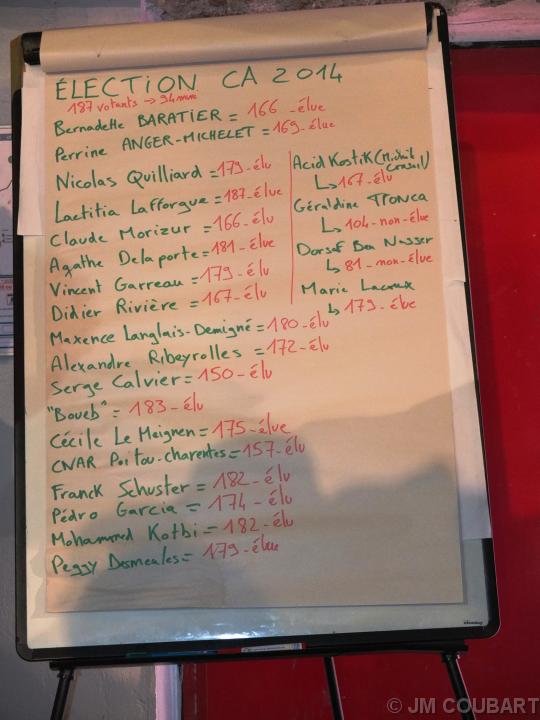 ÉLECTION CA 2014
187 votants → 94 mini
Bernadette BARATIER = 166 - élue
Perrine ANGER-MICHELET = 169 - élue
Nicolas Quilliard = 179 - élu
Laetitia Lafforgue = 187 - élue
Claude Morizur = 166 - élu
Agathe Delaporte = 181 - élue
Vincent Garreau = 179 - élu
Didier Rivière = 167 - élu
Maxence Langlais-Demigné = 180 - élu
Alexandre Ribeyrolles = 172 - élu
Serge Calvier = 150 - élu
"Boueb" = 183 - élu
Cécile Le Meignen = 175 - élue
CNAR Poitou-charentes = 157 - élu
Franck Schuster = 182 - élu
Pédro Garcia = 174 - élu
Mohammed Kotbi = 182 - élu
Peggy Desmeules = 179 - élue
Acid Kostik (
)
↳ 167 - élu
Géraldine TRONCA
↳ 104 - non-élue
Dorsaf Ben Nasser
↳ 81 - non-élue
Marie Lacoux
↳ 179 - élue
© JM COUBART